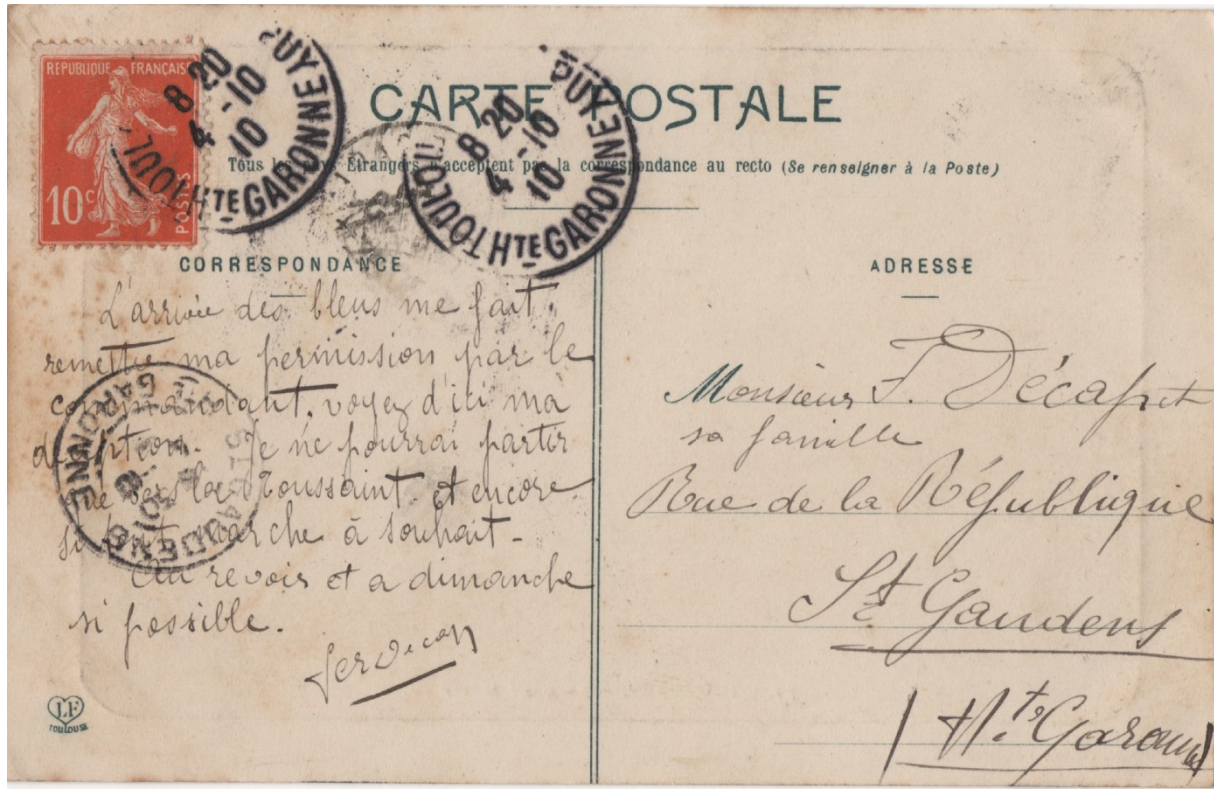 REPUBLIQUE FRANÇAISE
10c
POSTES
8 20
4 -10
10
HTE GARONNE
8 20
4 -10
10
HTE GARONNE
CARTE POSTALE
Tous les pays Etrangers n'acceptent pas la correspondance au recto (Se renseigner à la Poste)
CORRESPONDANCE
L'arrivée des bleus me fait
remettre ma permission par le
commandant. voyez d'ici ma
Je ne pourrai partir
que vers la Toussaint. et encore
si tout marche à souhait -
Au revoir et a dimanche
si possible.
ST GAUDENS
GARONNE
LF
TOULOUSE
ADRESSE
Monsieur F. Décap
sa famille
Rue de la République
St Gaudens
Hte Garonne